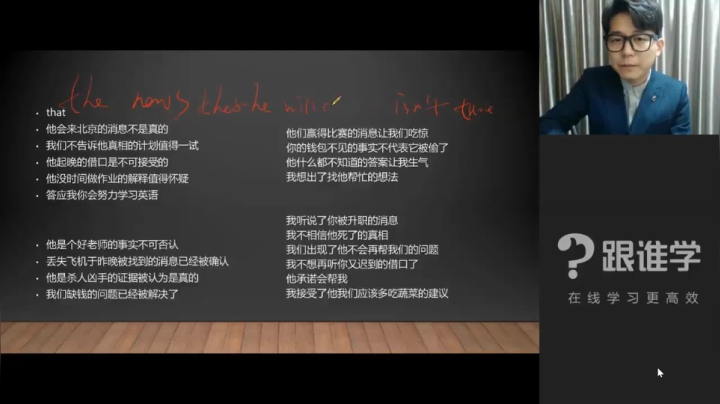 the news that he isn't true
that
他会来北京的消息不是真的
我们不告诉他真相的计划值得一试
他起晚的借口是不可接受的
他没时间做作业的解释值得怀疑
答应我你会努力学习英语
他是个好老师的事实不可否认
丢失飞机于昨晚被找到的消息已经被确认
他是杀人凶手的证据被认为是真的
我们缺钱的问题已经被解决了
他们赢得比赛的消息让我们吃惊
你的钱包不见的事实不代表它被偷了
他什么都不知道的答案让我生气
我想出了找他帮忙的想法
我听说了你被升职的消息
我不相信他死了的真相
我们出现了他不会再帮我们的问题
我不想再听你又迟到的借口了
他承诺会帮我
我接受了他我们应该多吃蔬菜的建议
跟谁学
在线学习更高效